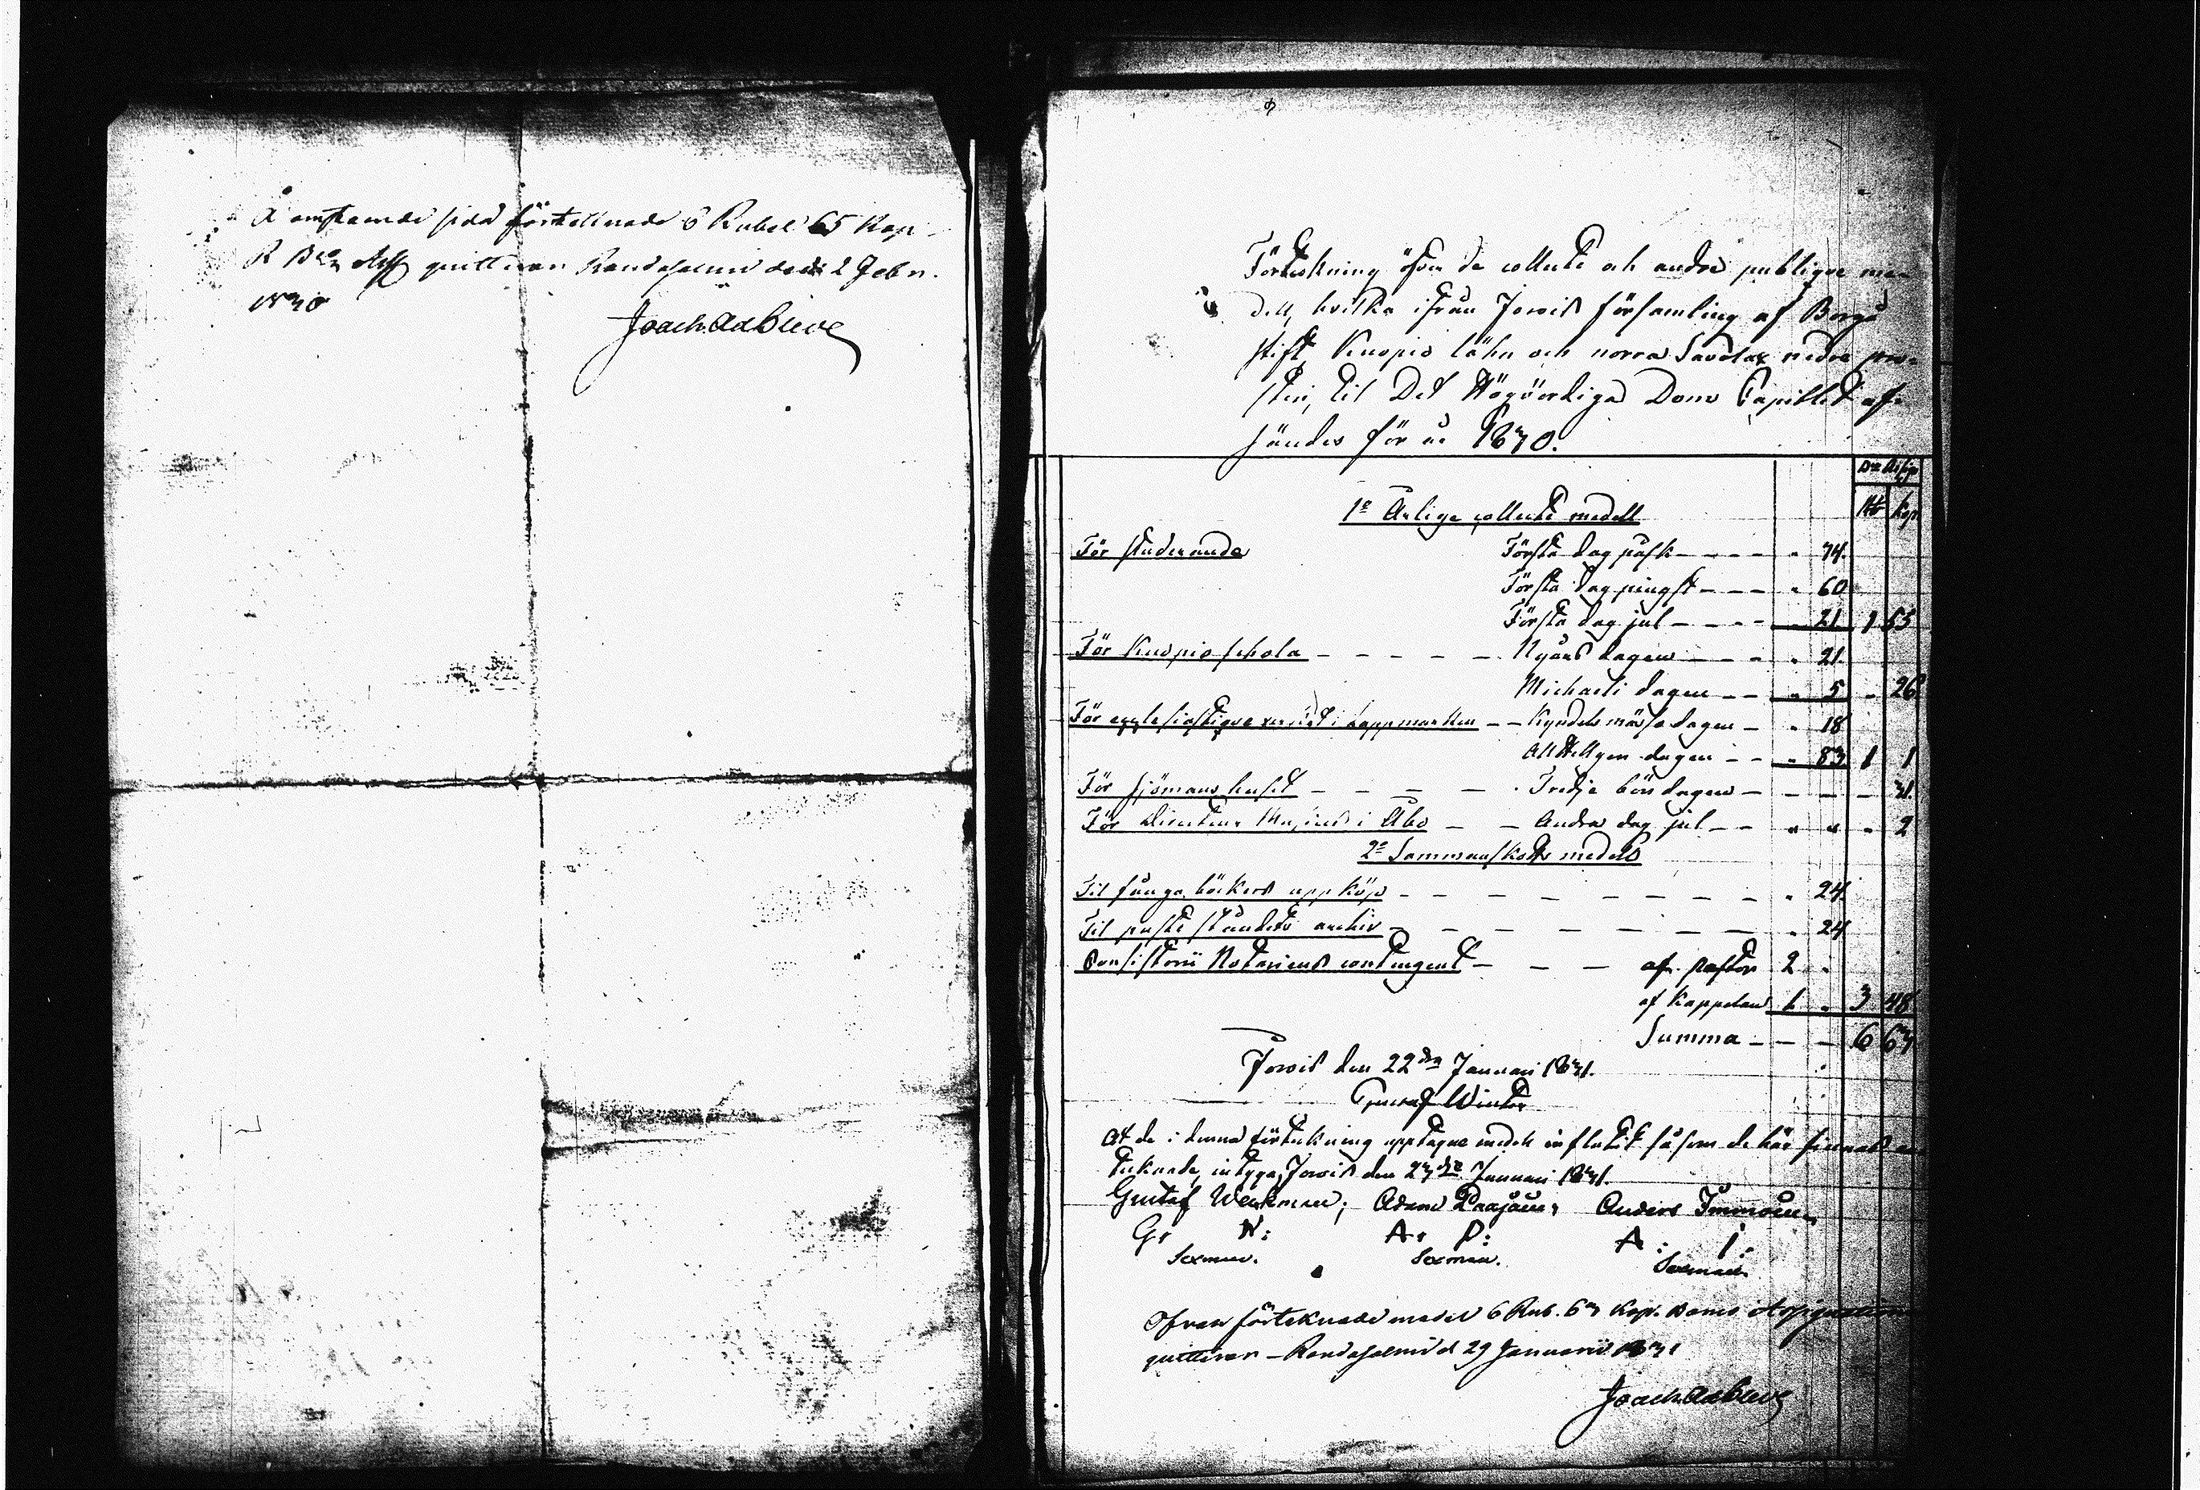 Å omstående sida förteknade 6 Rubel 65 Kop
R B:co Ass quitteras Randasalmi den 2 Febr.
1830
Joach. Ad Cleve
Förteckning öfver de collect och andra publique me-
dell, hvilka ifrån Jorois församling af Borgå
stift, Kuopio lähn och norra Savolax nedre pro-
steri, til Det Högvördiga Dom Capitlet af-
sändes för år 1830.
B:co Assign
Rub Kop
1:o Årlige collect medell
För studerande Första dag påsk - - - - " 74.
Första dag pingst - - - " 60
Första dag jul - - - - 21. 1 55
För Kuopio schola - - - - - Nyårs dagen - - - " 21.
Michaeli dagen - - " 5 " 26
För ecclesiastique verket i Lappmarken - - Kyndelsmässo dagen - " 18
All Helgon dagen - - " 83 1 1
För sjömans huset - - - - Tredje böndagen - - - - 31.
För Directeur i Åbo - - Andra dag jul - - " " " 2
2:o Sammanskotts medell
Til fånga böckers uppköp - - - - - - - - - " 24.
Til preste ståndets archiv - - - - - - - - " 24
Consistorii Notariens contingent - - - af Pastor 2 "
af Kappelan 1 " 3 48
Summa - - - 6 63
Jorois den 22:dra Januari 1831.
Gustaf Winter
At de i denna förtekning upptagne medell influtit såsom de här finnas an-
teknade, intyga, Jorois den 23:dje Januari 1831.
Gustaf Wenkman; Adam Paajanen, Anders Immonen
G: W: A: P: A: I:
Sexman. Sexman. Sexman
Ofvan förteknade medel 6 Rub. 63 Kop. Banco Assignation
quitteras - Randasalmi d 29 Januarii 1831
Joach. Ad Cleve